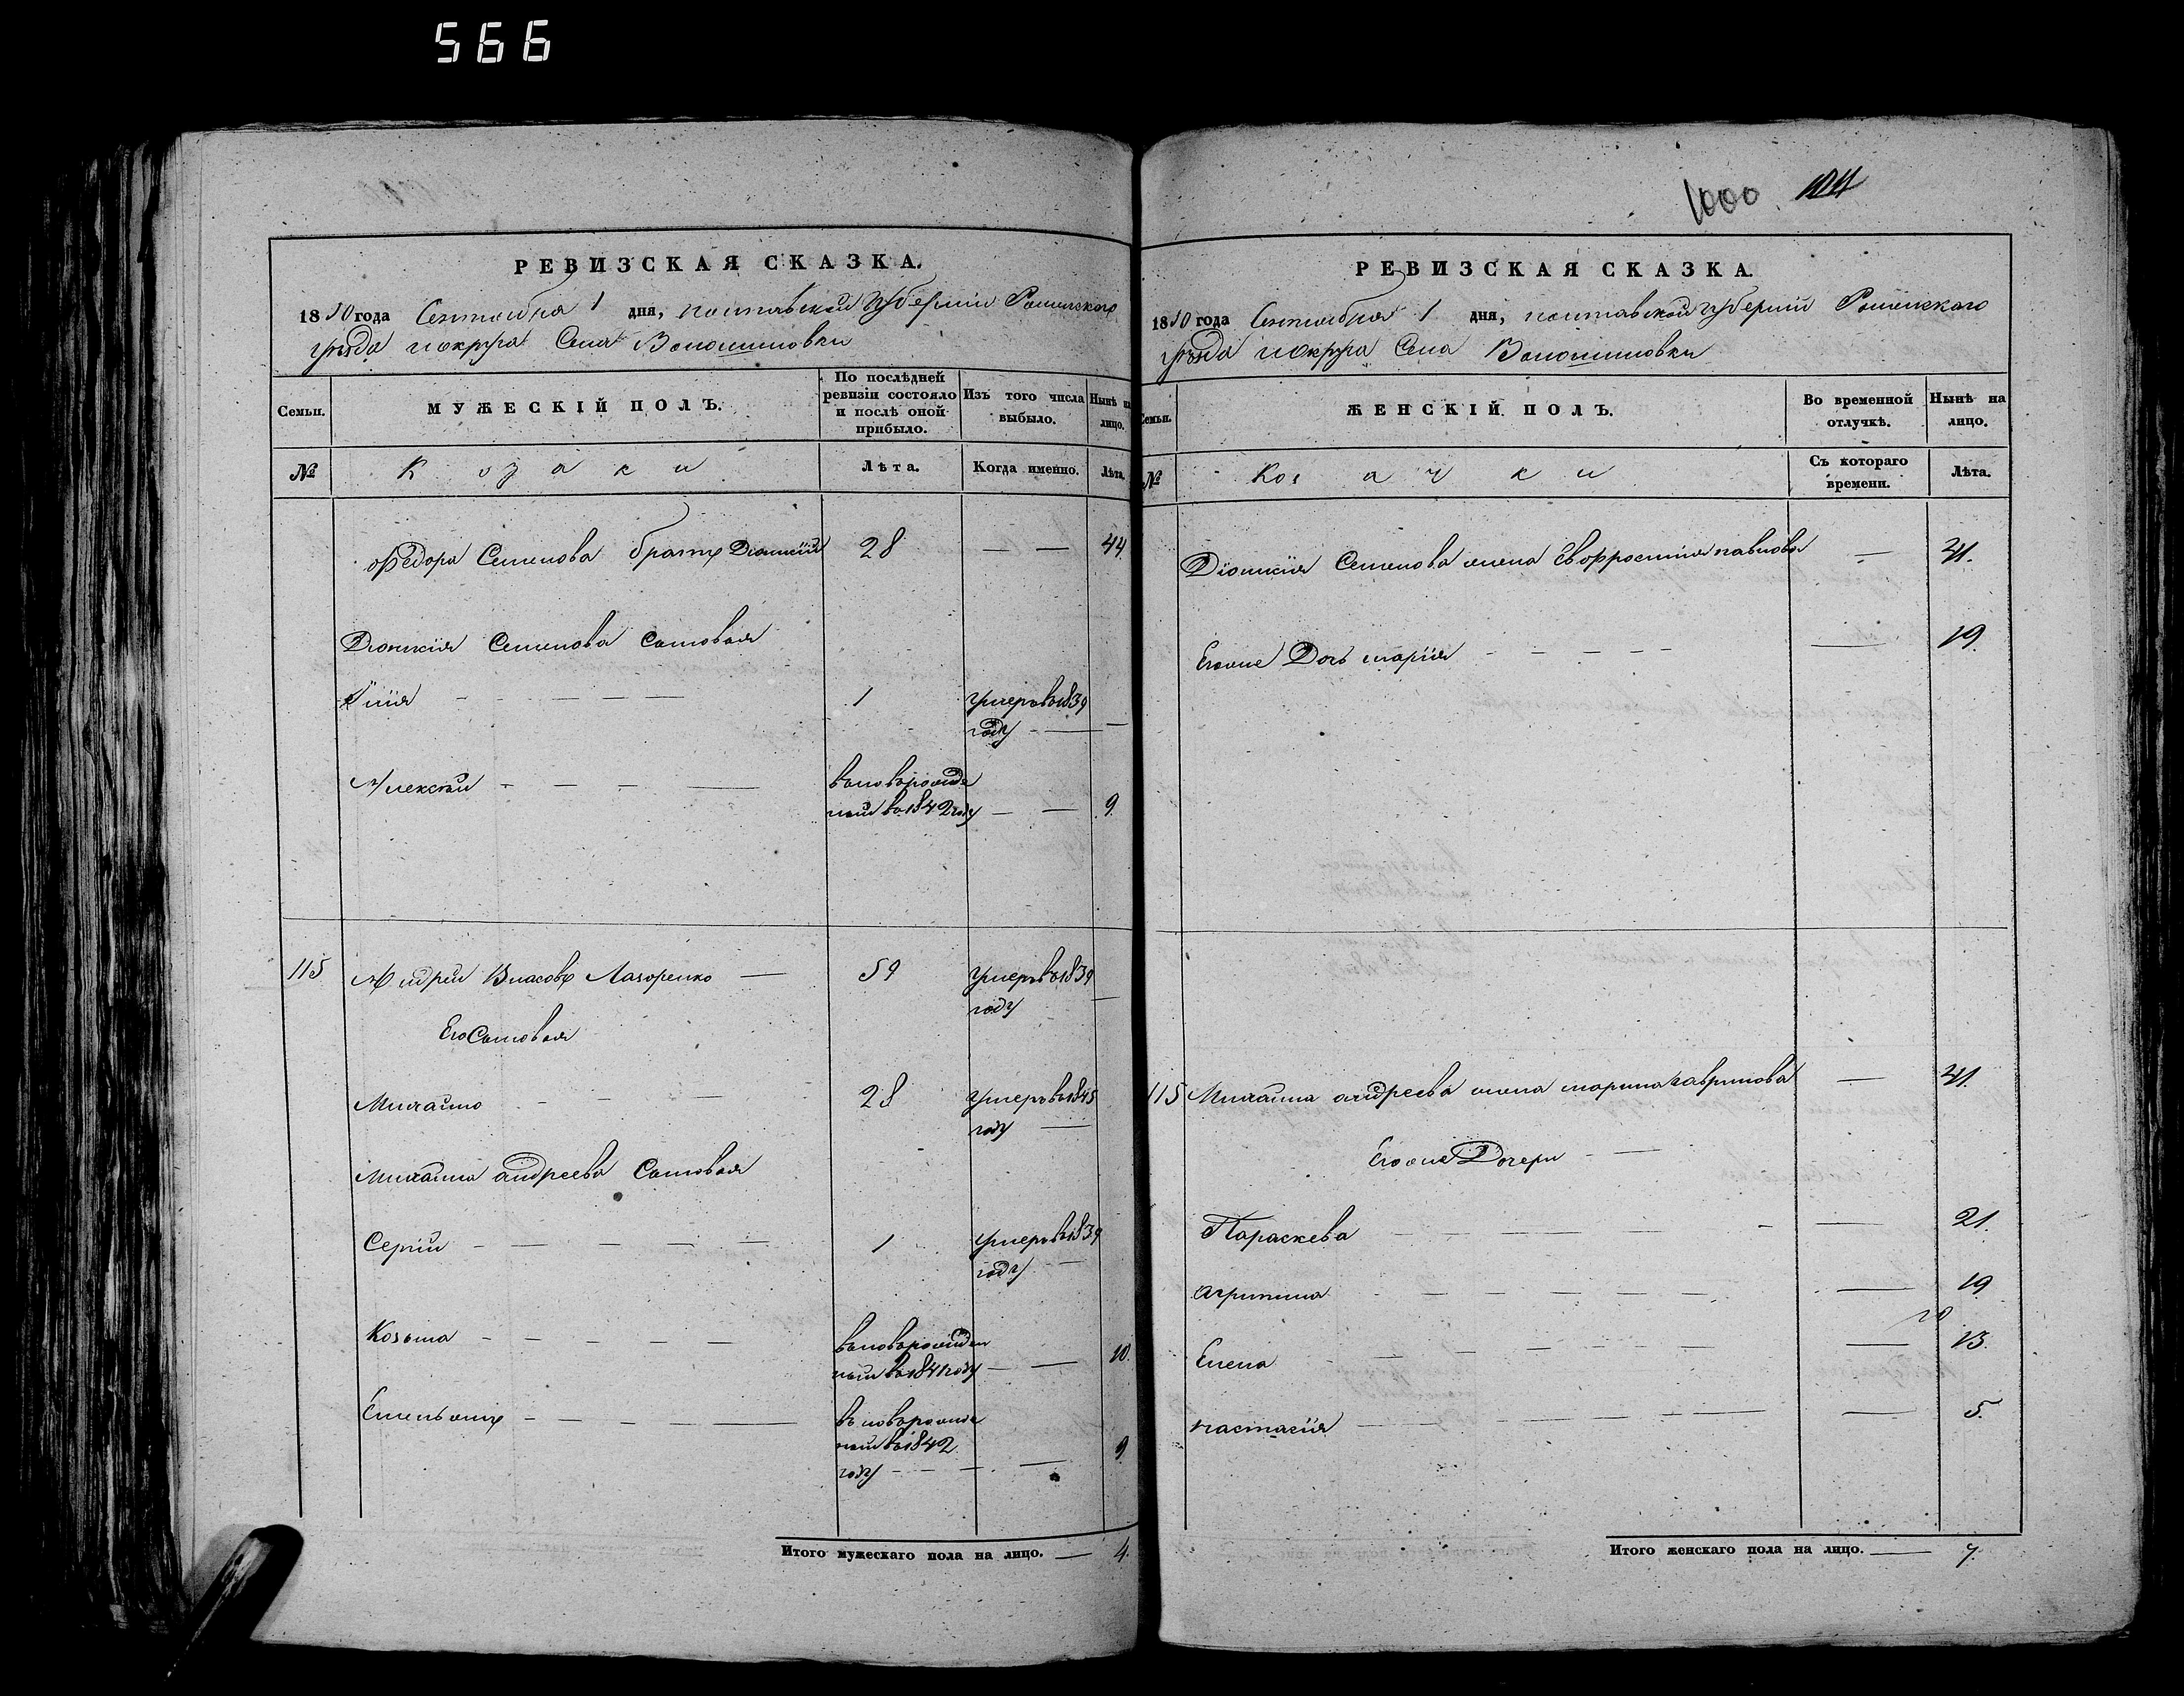 566
РЕВИЗСКАЯ СКАЗКА.
1850 года Сентября 1 дня, полтавской губернии Роменскаго
уѣзда и округа Села Волошиновки
Семьи.
МУЖЕСКІЙ ПОЛЪ.
По послѣдней ревизіи состояло и послѣ оной прибыло.
Изъ того числа выбыло.
Нынѣ на лицо.
№
Козаки
Лѣта.
Когда именно.
Лѣта.
Федора Семенова братъ Діонисій 28 — — 44.
Діонисія Семенова Сыновья
1 умеръ в 1839
году —
Алексѣй — — — — вновьрожде
ный в 1842 году — — 9.
115 Андрей Власовъ Лазоренко — 59 умеръ в 1839
году —
Его Сыновья
Михайло — — — 28 умеръ в 1845
году —
Михайла андреева Сыновья
Сергій — — — — — 1 умеръ в 1839
году —
Козьма — — — — — вновьрожден
ный в 1841 году — — 10.
Емельянъ — — — — — вновьрожде
ный в 1842
году — — — — 9
Итого мужескаго пола на лицо. — 4.
1000 104
РЕВИЗСКАЯ СКАЗКА.
1850 года Сентября 1 дня, полтавской губерніи Роменскаго
уѣзда и округа Села Волошиновки
Семьи.
ЖЕНСКІЙ ПОЛЪ.
Во временной отлучкѣ.
Нынѣ на лицо.
№
Козачки
Съ котораго времени.
Лѣта.
Діонисія Семенова жена Евфросинія павлова — 41.
Егоже Дочь марія — — — — — — 19.
115 Михайла андреева жена марина гаврилова — 41.
Егоже Дочери — —
Параскева — — — — — — 21.
агрипина — — — — — — — 19
Елена — — — — — — — 13.
настасія — — — — — 5.
Итого женскаго пола на лицо. — 7.